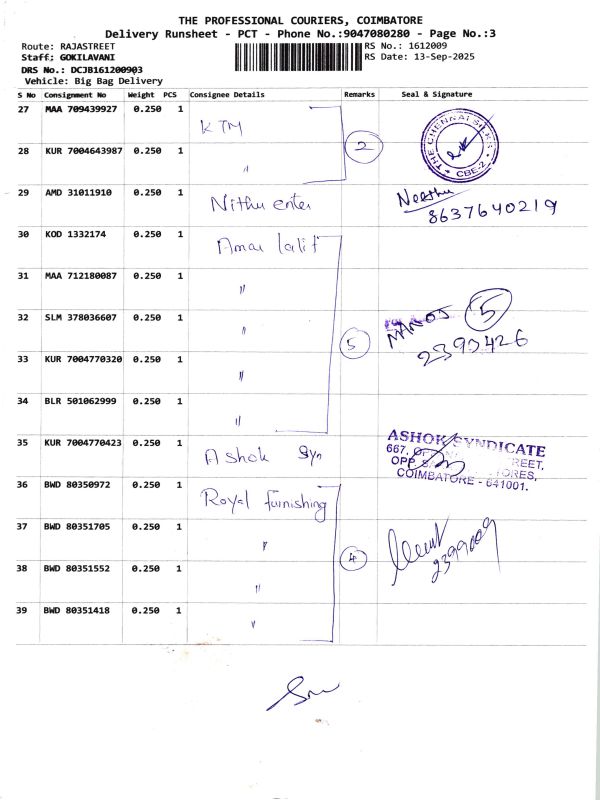 THE PROFESSIONAL COURIERS, COIMBATORE
Delivery Runsheet - PCT - Phone No.:9047080280 - Page No.:3
Route: RAJASTREET
RS No.: 1612009
Staff; GOKILAVANI
RS Date: 13-Sep-2025
DRS No.: DCJB161200903
Vehicle: Big Bag Delivery
S No Consignment No Weight PCS Consignee Details Remarks Seal & Signature
27 MAA 709439927 0.250 1 KTM
THE CHENNAI SILKS
CBE-2
2
28 KUR 7004643987 0.250 1 〃
29 AMD 31011910 0.250 1 Nithu enter
8637640219
30 KOD 1332174 0.250 1 Amar lalit
31 MAA 712180087 0.250 1 〃
32 SLM 378036607 0.250 1 〃
5
MANOJ 5
2393426
33 KUR 7004770320 0.250 1 〃
34 BLR 501062999 0.250 1 〃
35 KUR 7004770423 0.250 1 Ashok Syn
ASHOK SYNDICATE
667, STREET,
OPP. STORES,
COIMBATORE - 641001.
36 BWD 80350972 0.250 1 Royal furnishing
37 BWD 80351705 0.250 1 〃
4
2399009
38 BWD 80351552 0.250 1 〃
39 BWD 80351418 0.250 1 〃